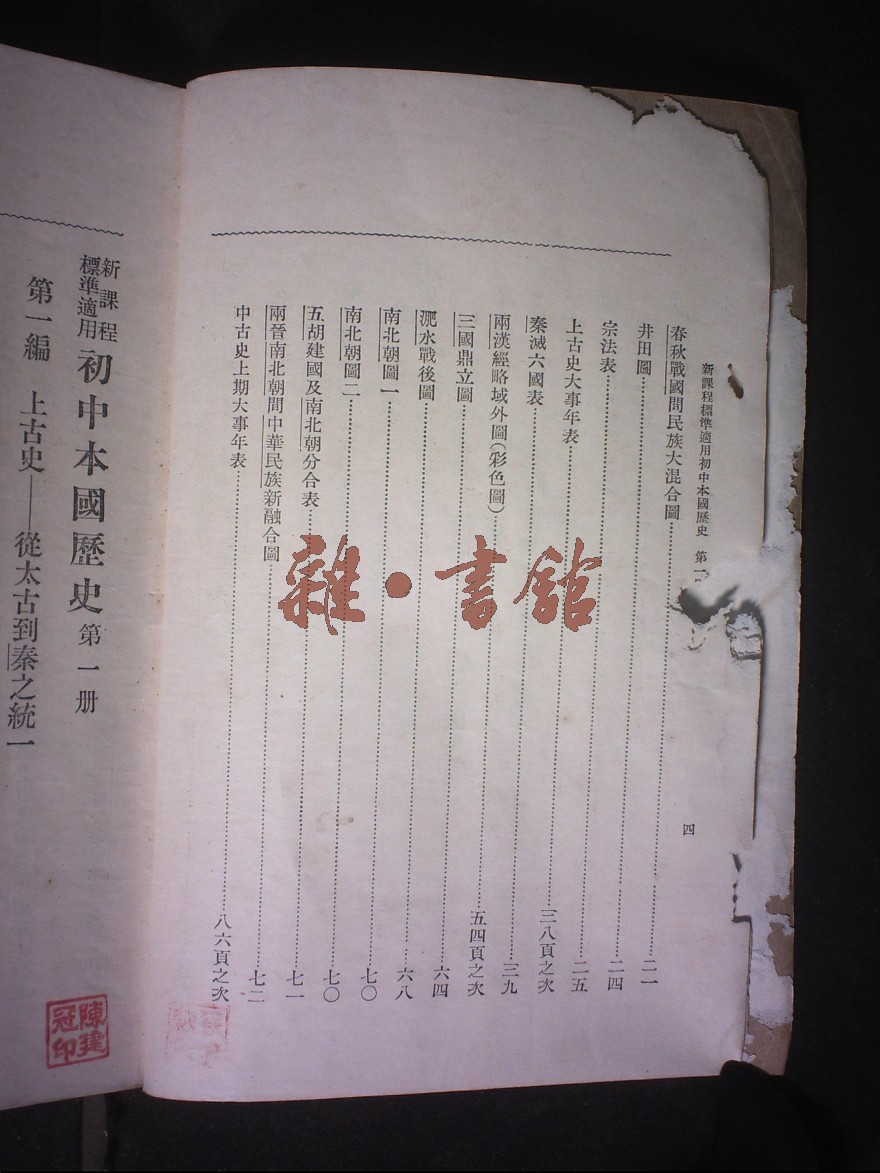 新課程標準適用初中本國歷史 第一
四
春秋戰國間民族大混合圖……二一
井田圖……二四
宗法表……二五
上古史大事年表……三八頁之次
秦滅六國表……三九
兩漢經略域外圖（彩色圖）……五四頁之次
三國鼎立圖……六四
淝水戰後圖……六八
南北朝圖一……七〇
南北朝圖二……七〇
五胡建國及南北朝分合表……七一
兩晉南北朝間中華民族新融合圖……七二
中古史上期大事年表……八六頁之次
新課程
標準適用
初中本國歷史 第一册
第一編 上古史——從太古到秦之統一
陳建
冠印
雜·書館